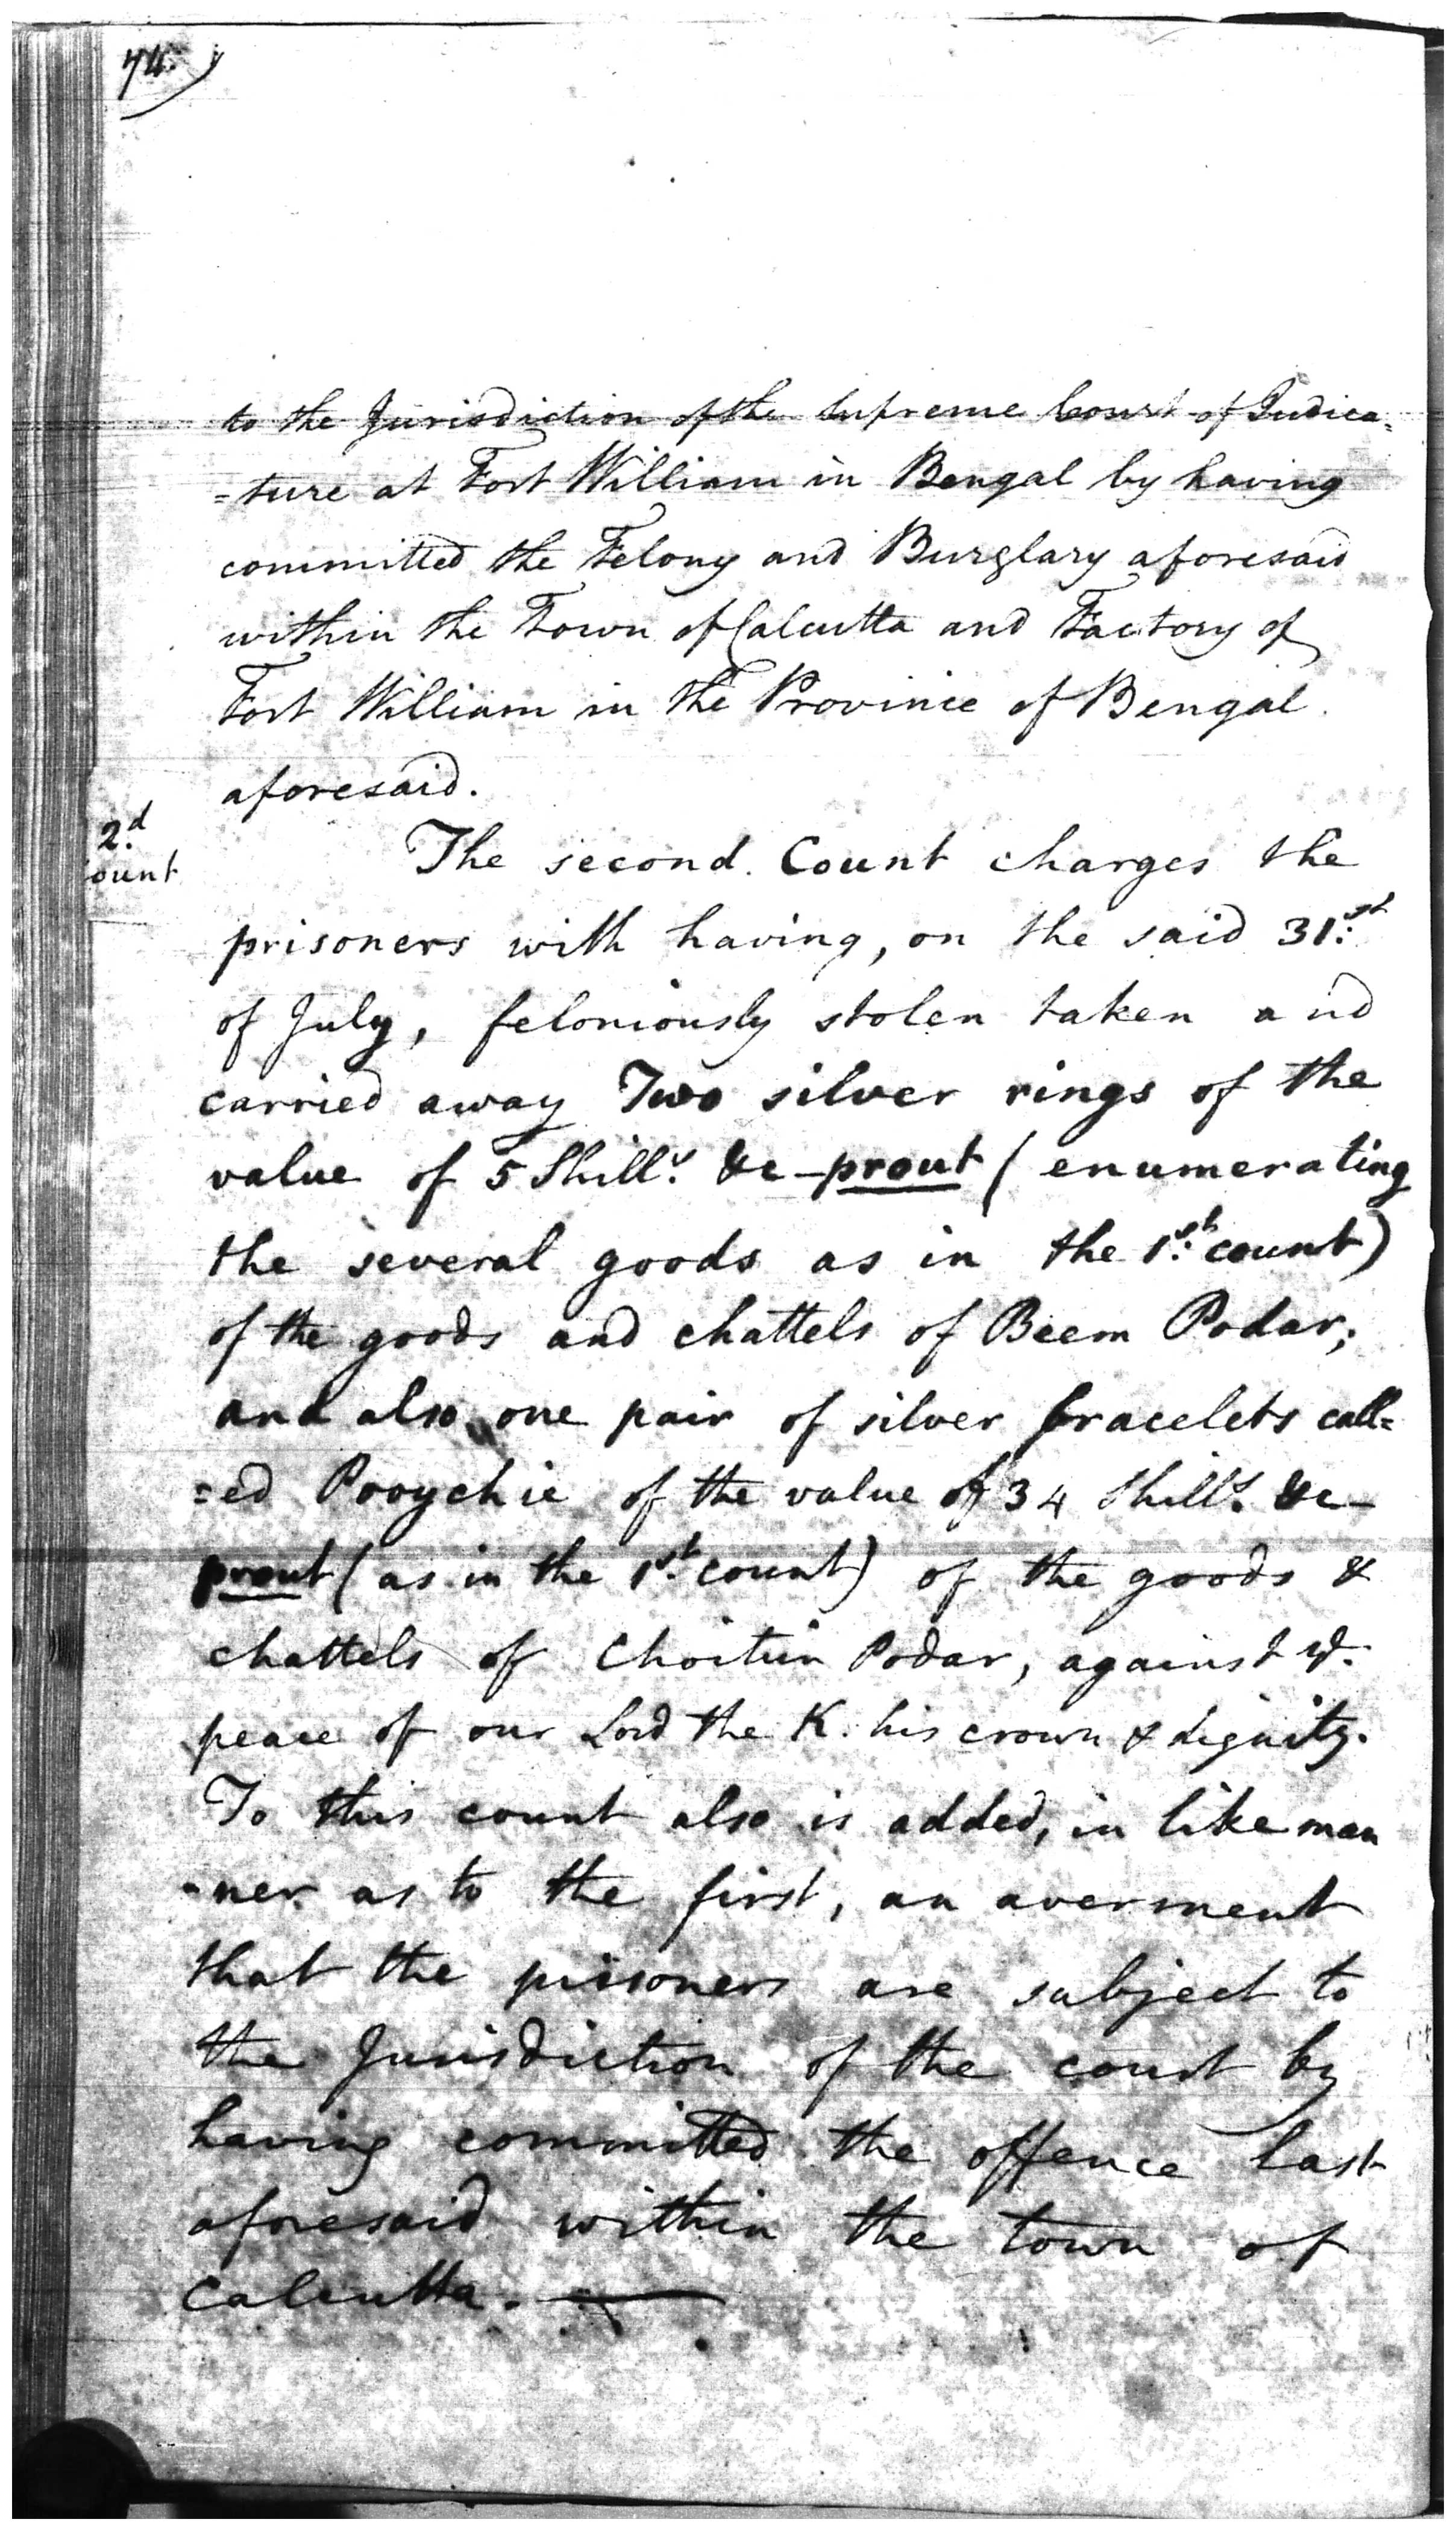 74.)
to the Jurisdiction of the Supreme Court of Judica=
=ture at Fort William in Bengal by having
committed the Felony and Burglary aforesaid
within the Town of Calcutta and Factory of
Fort William in the Province of Bengal.
aforesaid.
2.d
ount
The second Count charges the
prisoners with having, on the said 31st
of July, feloniously stolen taken and
carried away Two silver rings of the
value of 5 Shills. &c - prout (enumerating
the several goods as in the 1st count)
of the goods and chattels of Beem Podar;
and also one pair of silver bracelets call=
=ed Poogchie of the value of 34 shills. &c -
prout (as in the 1st count) of the goods &
chattels of Choitun Podar, against ye.
peace of our Lord the K. his crown & dignity.
To this count also is added, in like man
=ner as to the first, an averment
that the prisoners are subject to
the Jurisdiction of the court by
having committed the offence last
aforesaid within the town of
Calcutta. —